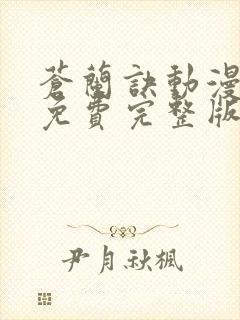 蒼蘭訣動漫
免費完整版
尹月秋楓